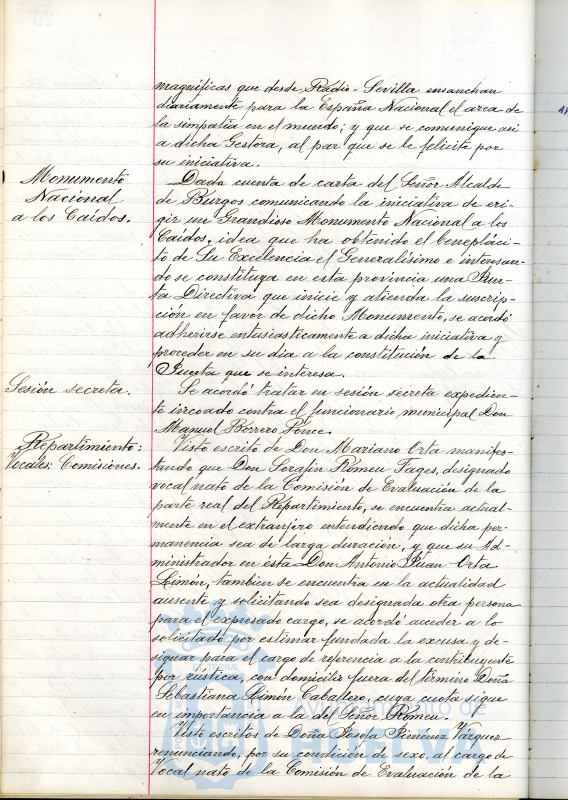 magníficas que desde Radio-Sevilla ensanchan
diariamente para la España Nacional el area de
la simpatía en el mundo; y que se comunique así
a dicha Gestora, al par que se le felicite por
su iniciativa.
Monumento
Nacional
a los Caídos.
Dada cuenta de carta del Señor Alcalde
de Burgos comunicando la iniciativa de eri-
gir un Grandioso Monumento Nacional a los
Caídos, idea que ha obtenido el benepláci-
to de Su Excelencia el Generalísimo e interesan-
do se constituya en esta provincia una Jun-
ta Directiva que inicie y atienda la suscrip-
ción en favor de dicho Monumento, se acordó
adherirse entusiasticamente a dicha iniciativa y
proceder en su día a la constitución de la
Junta que se interesa.
Sesión secreta.
Se acordó tratar en sesión secreta expedien-
te incoado contra el funcionario municipal Don
Manuel Borrero Ponce.
Repartimiento:
Vocales: Comisiones.
Visto escrito de Don Mariano Orta manifes-
tando que Don Serafín Romeu Fages, designado
vocal nato de la Comisión de Evaluación de la
parte real del Repartimiento, se encuentra actual-
mente en el extranjero entendiendo que dicha per-
manencia sea de larga duración, y que su Ad-
ministrador en esta Don Antonio Juan Orta
Limón, tambien se encuentra en la actualidad
ausente y solicitando sea designada otra persona
para el expresado cargo, se acordó acceder a lo
solicitado por estimar fundada la excusa y de-
signar para el cargo de referencia a la contribuyente
por rústica, con domicilio fuera del término Doña
Sebastiana Limón Caballero, cuya cuota sigue
en importancia a la del Señor Romeu.
Visto escritos de Doña Jiménez Vázquez
renunciando, por su condición de sexo, al cargo de
Vocal nato de la Comisión de Evaluación de la
Ayuntamiento de